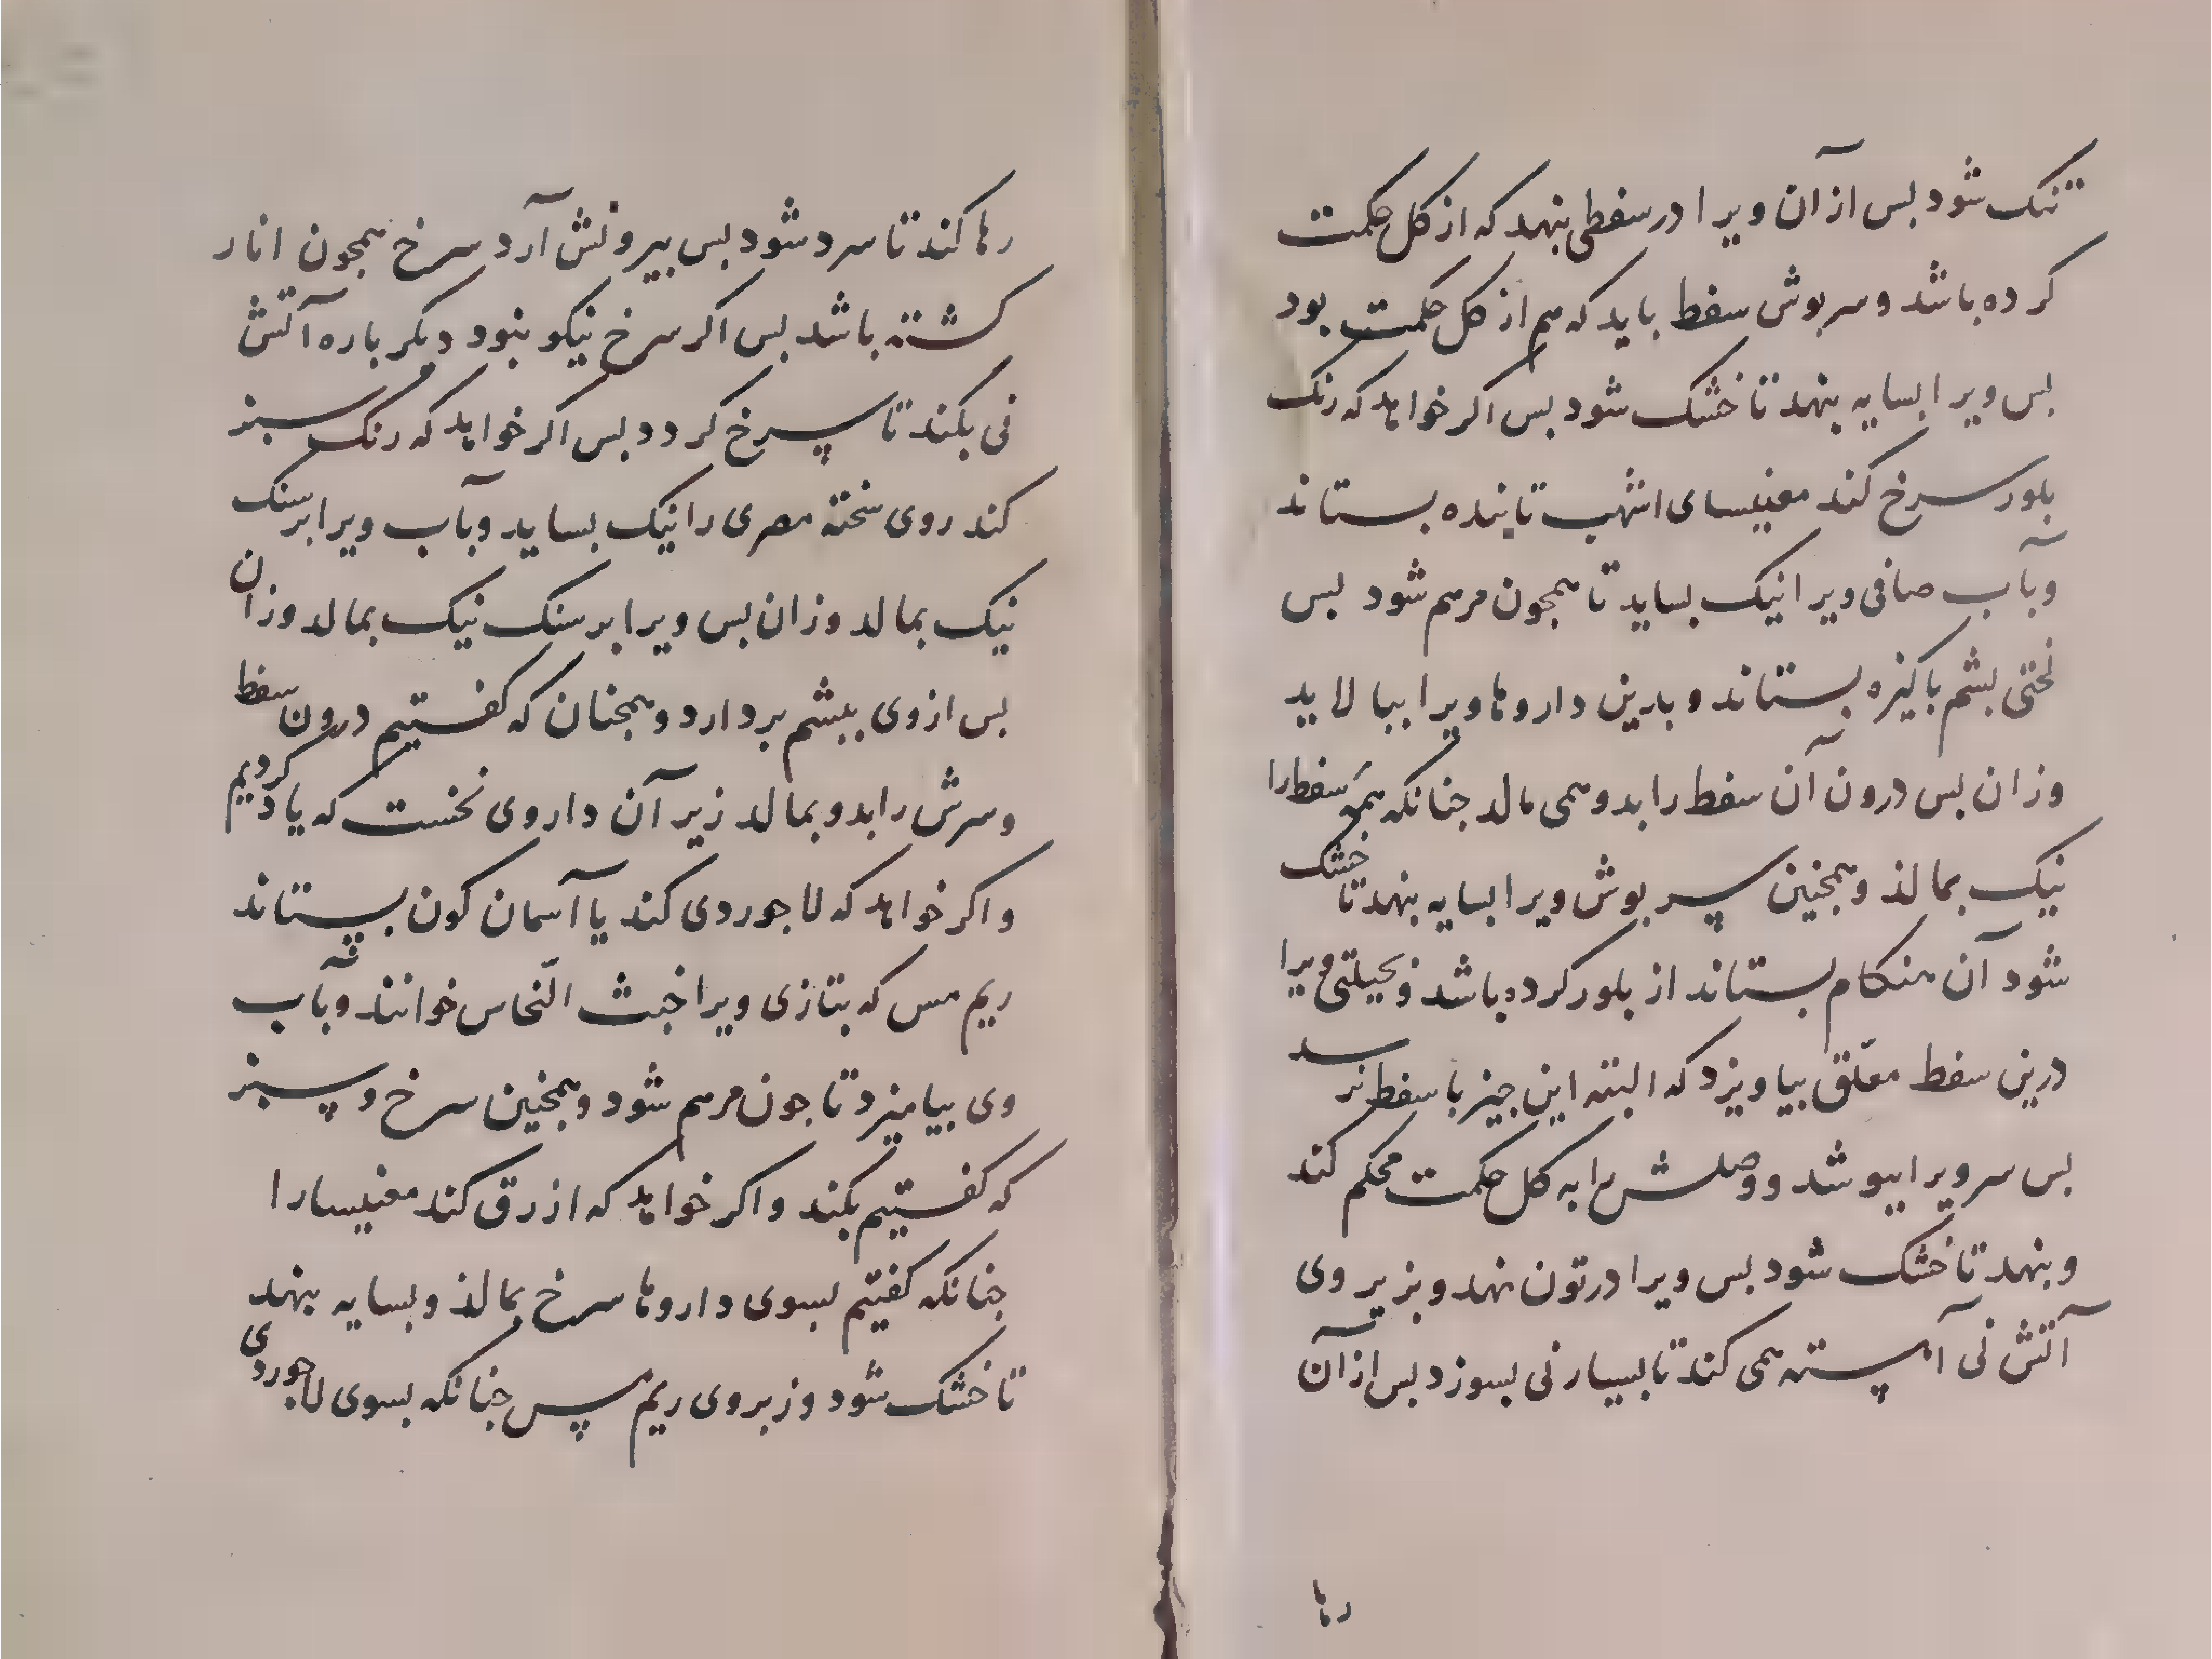 تنک شود بس از آن ویرا در سفطی بنهد که از کل حکمت
کرده باشد و سربوش سفط باید که هم از کل حکمت بود
بس ویرا بسایه بنهد تا خشک شود بس اکر خواهد که رنک
بلور سرخ کند مغنیسای اشهب تابنده بستاند
وبآب صافی ویرا نیک بساید تا همجون مرهم شود بس
لختی بشم باکیزه بستاند و بدین داروها ویرا ببالاید
وزان بس درون آن سفط را بدو همی مالد جنانکه همه سفط را
نیک بمالذ و همجنین سربوش ویرا بسایه بنهد تا خشک
شود آن هنکام بستاند از بلور کرده باشد و بحیلتی ویرا
درین سفط معلّق بیاویزد که البته این جیز با سفط نرسد
بس سر ویرا ببوشد و وصلش را به کل حکمت محکم کند
و بنهد تا خشک شود بس ویرا در تون نهد و بزیر وی
آتش نی آهسته همی کند تا بسیار نی بسوزد بس از آن
رها
رها کند تا سرد شود بس بیرونش آرد سرخ همجون انار
کشته باشد بس اکر سرخ نیکو نبود دیکر باره آتش
نی بکند تا سرخ کردد بس اکر خواهد که رنک سبز
کند روی سخته مصری را نیک بساید وبآب ویرا بر سنک
نیک بمالد وزان بس ویرا بر سنک نیک بمالد وزان
بس از وی ببشم بردارد و همجنان که کفتیم درون سفط
و سرش را بدو بمالد زیر آن داروی نخست که یاد کردیم
و اکر خواهد که لاجوردی کند یا آسمان کون بستاند
ریم مس که بتازی ویرا خبث النّحاس خوانند وبآب
وی بیامیزد تا جون مرهم شود و همجنین سرخ و سبز
که کفتیم بکند و اکر خواهد که ازرق کند مغنیسا را
جنانکه کفتیم بسوی داروها سرخ بمالذ و بسایه بنهد
تا خشک شود وز بروی ریم مس جنانکه بسوی لاجوردی